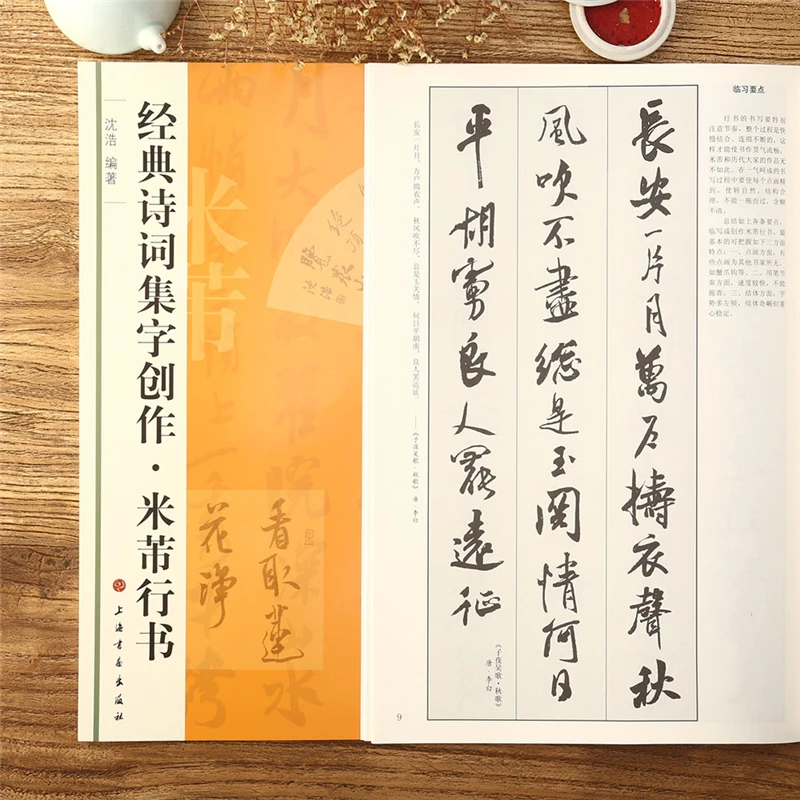 经典诗词集字创作·米芾行书
沈浩 编著
上海书画出版社
米芾
看取蓮
花淨
沈浩
临习要点
行书的书写要特别
注意节奏,整个过程是快
慢结合,连绵不断的,这
样才能使书作贯气流畅。
米芾和历代大家的作品无
不如此。在一气呵成的书
写过程中要使每个点画精
到,使转自然,结构合
理,不能一拖而过,含糊
不清。
总结如上各条要点,
临写或创作米芾行书,最
基本的可把握如下三方面
特点:一、点画方面,有
些点画为其他书家所无,
如蟹爪钩等。二、用笔节
奏方面,速度较快,不能
拖沓。三、结体方面,字
势多左倾,结体奇崛但重
心稳定。
長安一片月萬户擣衣聲秋
風吹不盡總是玉関情何日
平胡虜良人罷遠征
《子夜吴歌·秋歌》
唐·李白
长安一片月,万户捣衣声。秋风吹不尽,总是玉关情。何日平胡虏,良人罢远征。
——《子夜吴歌·秋歌》 唐 李白
9